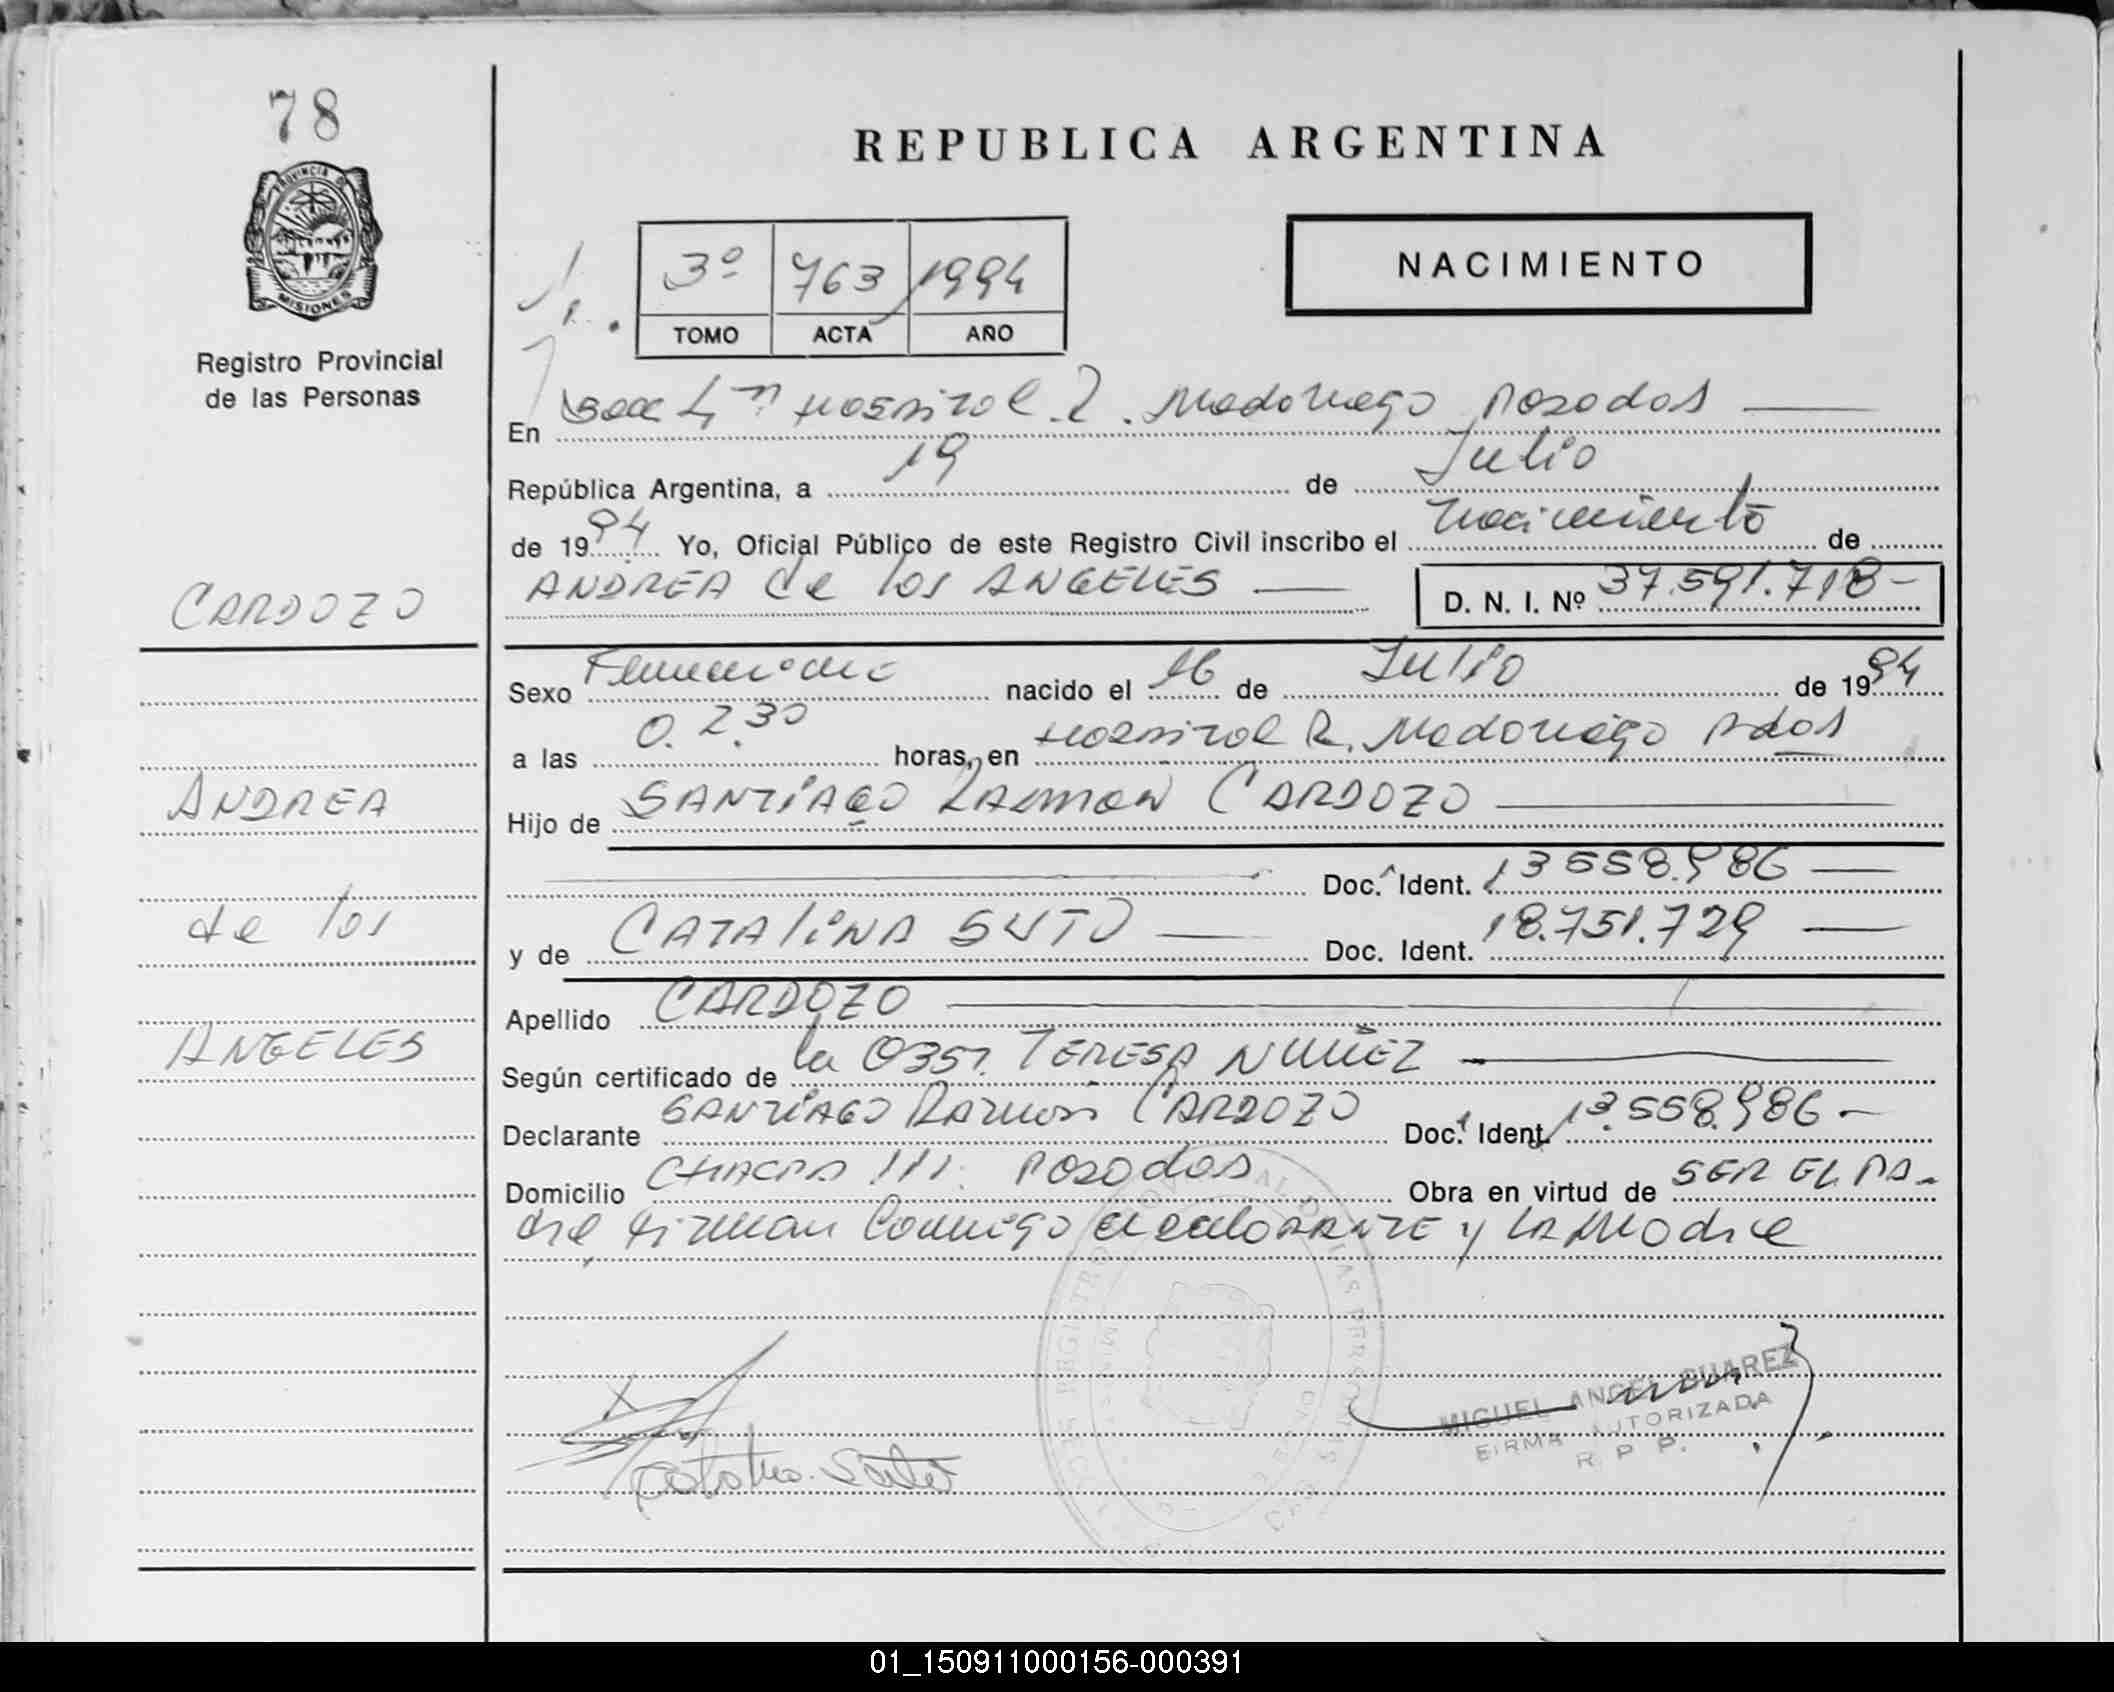 78
PROVINCIA DE
MISIONES
Registro Provincial
de las Personas
CARDOZO
ANDREA
de los
ANGELES
REPUBLICA ARGENTINA
3º 763 1994
TOMO ACTA AÑO
NACIMIENTO
En Hospital R. Madariaga Posadas
República Argentina, a 19 de Julio
de 1994 Yo, Oficial Público de este Registro Civil inscribo el Nacimiento de
ANDREA de los ANGELES D. N. I. Nº 37.591.718-
Sexo Femenino nacido el 16 de Julio de 1994
a las 0.2.30 horas, en Hospital R. Madariaga Pdas
Hijo de SANTIAGO RAMON CARDOZO
Doc. Ident. 13.558.986
y de CATALINA SUTO Doc. Ident. 18.751.729
Apellido CARDOZO
Según certificado de la Obst. TERESA NUÑEZ
Declarante SANTIAGO RAMON CARDOZO Doc. Ident. 13.558.986-
Domicilio CHACRA 111. Posadas Obra en virtud de SER EL PA-
dre, firman Conmigo el declarante y LA Madre
MIGUEL ANGEL DUAREZ
FIRMA AUTORIZADA
R. P. P.
01_150911000156-000391